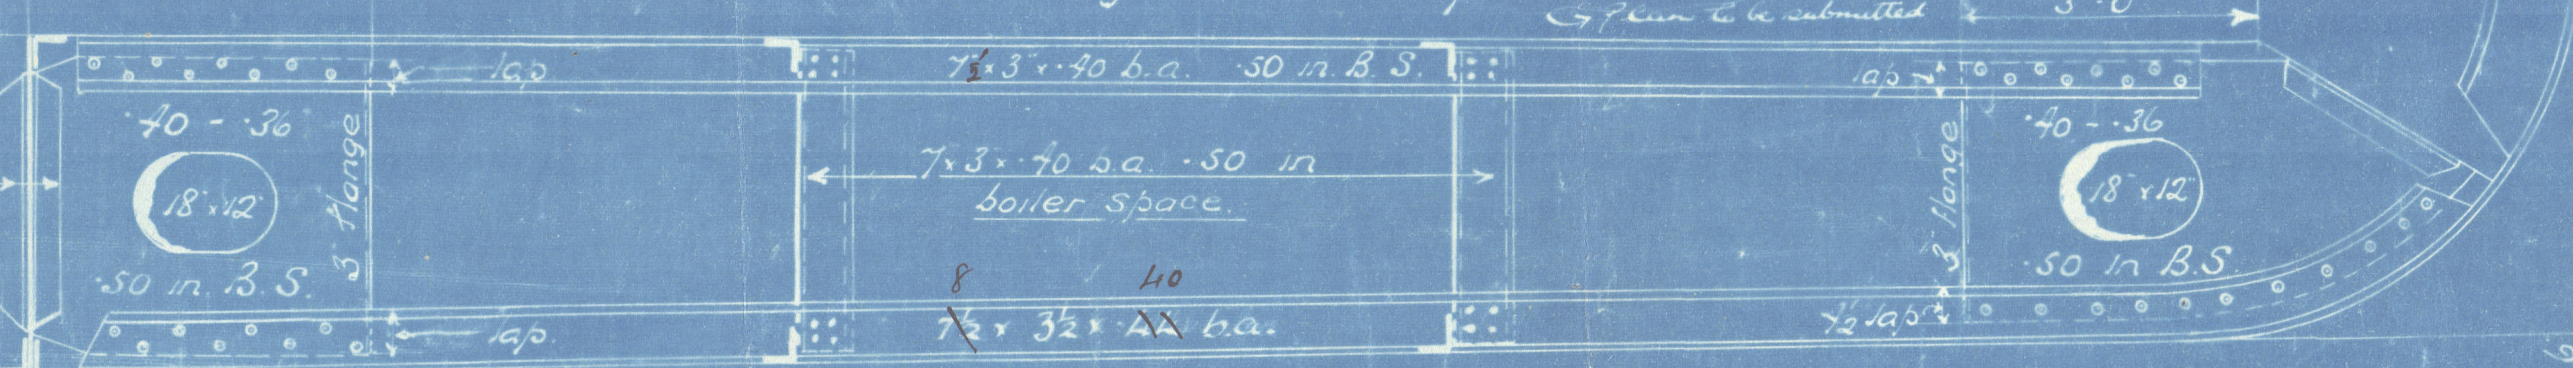 Plan to be submitted
3'-0"
lap
7½ × 3 × ·40 b.a. ·50 in B.S.
lap
·40 - ·36
3" flange
18" × 12"
·50 in. B.S.
7 × 3 × ·40 b.a. ·50 in
boiler space.
·40 - ·36
3" flange
18" × 12"
·50 in B.S.
8 40
7½ × 3½ × ·44 b.a.
lap.
lap